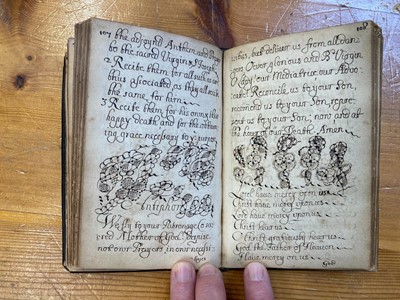 107
the aforesaid Anthem and Prayer
to the sacred Virgin & Joseph
2 Recite them for all such as are
thus associated as they all recite
the same for him
3 Recite them for his own
happy death and for the obtain
ing grace necessary to
Antiphon
We fly to your Patronage O sa
cred Mother of God, despise
not our Prayers in our necessi
108
ties, but deliver us from all dan
gers O ever glorious and B: Virgin
O Lady our Mediatrix our Advo
cate Reconcile us to your Son,
recomend us to your Son, repre
sent us to your Son; now and at
the hour of our Death Amen
Lord have mercy on us
Christ have mercy on us
Lord have mercy on us
Christ hear us
Christ gratiously hear us
God the Father of Heaven
Have mercy on us
God